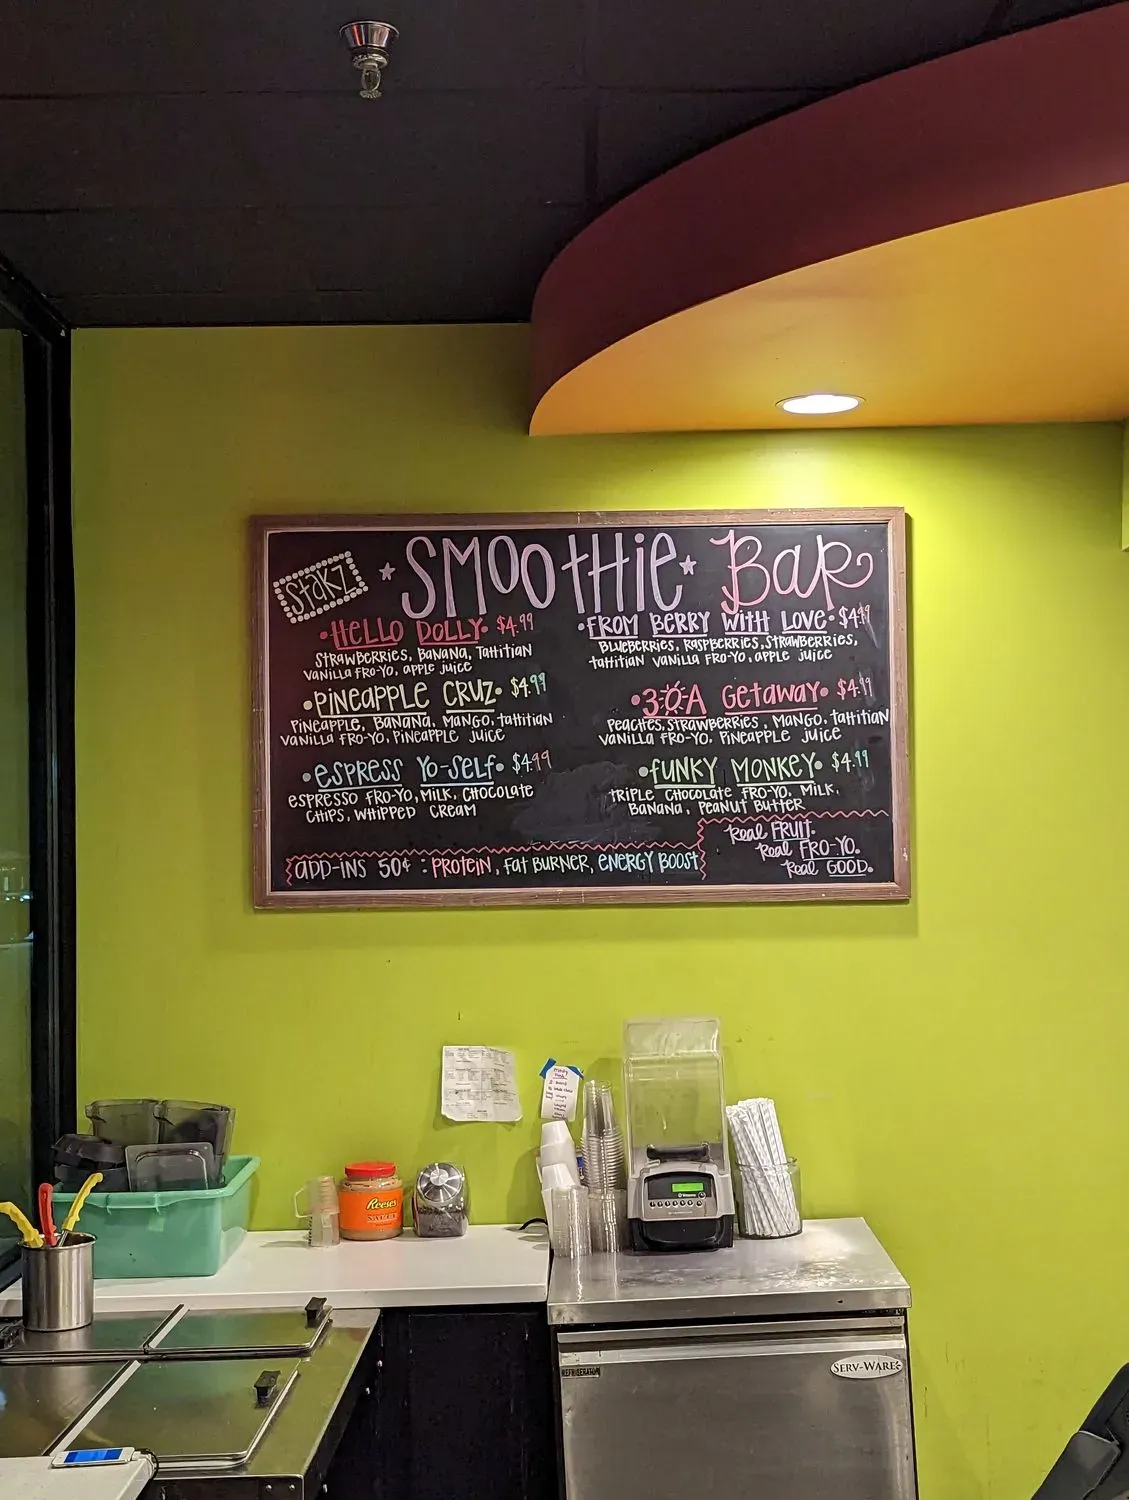 Stakz
SMOOTHIE BAR
HELLO DOLLY $4.99
STRAWBERRIES, BANANA, TAHITIAN
VANILLA FRO-YO, APPLE JUICE
PINEAPPLE CRUZ $4.99
PINEAPPLE, BANANA, MANGO, TAHITIAN
VANILLA FRO-YO, PINEAPPLE JUICE
ESPRESS YO-SELF $4.99
ESPRESSO FRO-YO, MILK, CHOCOLATE
CHIPS, WHIPPED CREAM
FROM BERRY WITH LOVE $4.99
BLUEBERRIES, RASPBERRIES, STRAWBERRIES,
TAHITIAN VANILLA FRO-YO, APPLE JUICE
3-O-A GETAWAY $4.99
PEACHES, STRAWBERRIES, MANGO, TAHITIAN
VANILLA FRO-YO, PINEAPPLE JUICE
FUNKY MONKEY $4.99
TRIPLE CHOCOLATE FRO-YO, MILK,
BANANA, PEANUT BUTTER
ADD-INS 50¢ : PROTEIN, FAT BURNER, ENERGY BOOST
Real FRUIT.
Real FRO-YO.
Real GOOD.
Reese's
SERV-WARE
REFRIGERATOR